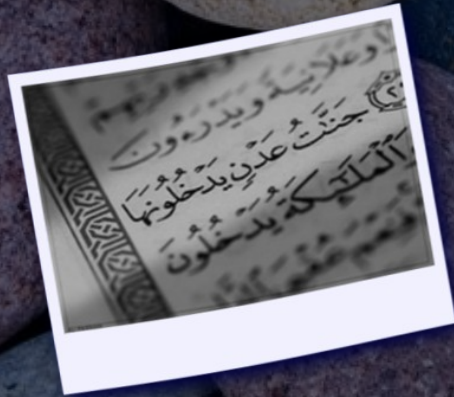 وَعَلَانِيَةً وَيَدْرَءُونَ
٢٢ جَنَّٰتُ عَدْنٍ يَدْخُلُونَهَا
وَٱلْمَلَٰٓئِكَةُ يَدْخُلُونَ
فَنِعْمَ عُقْبَى